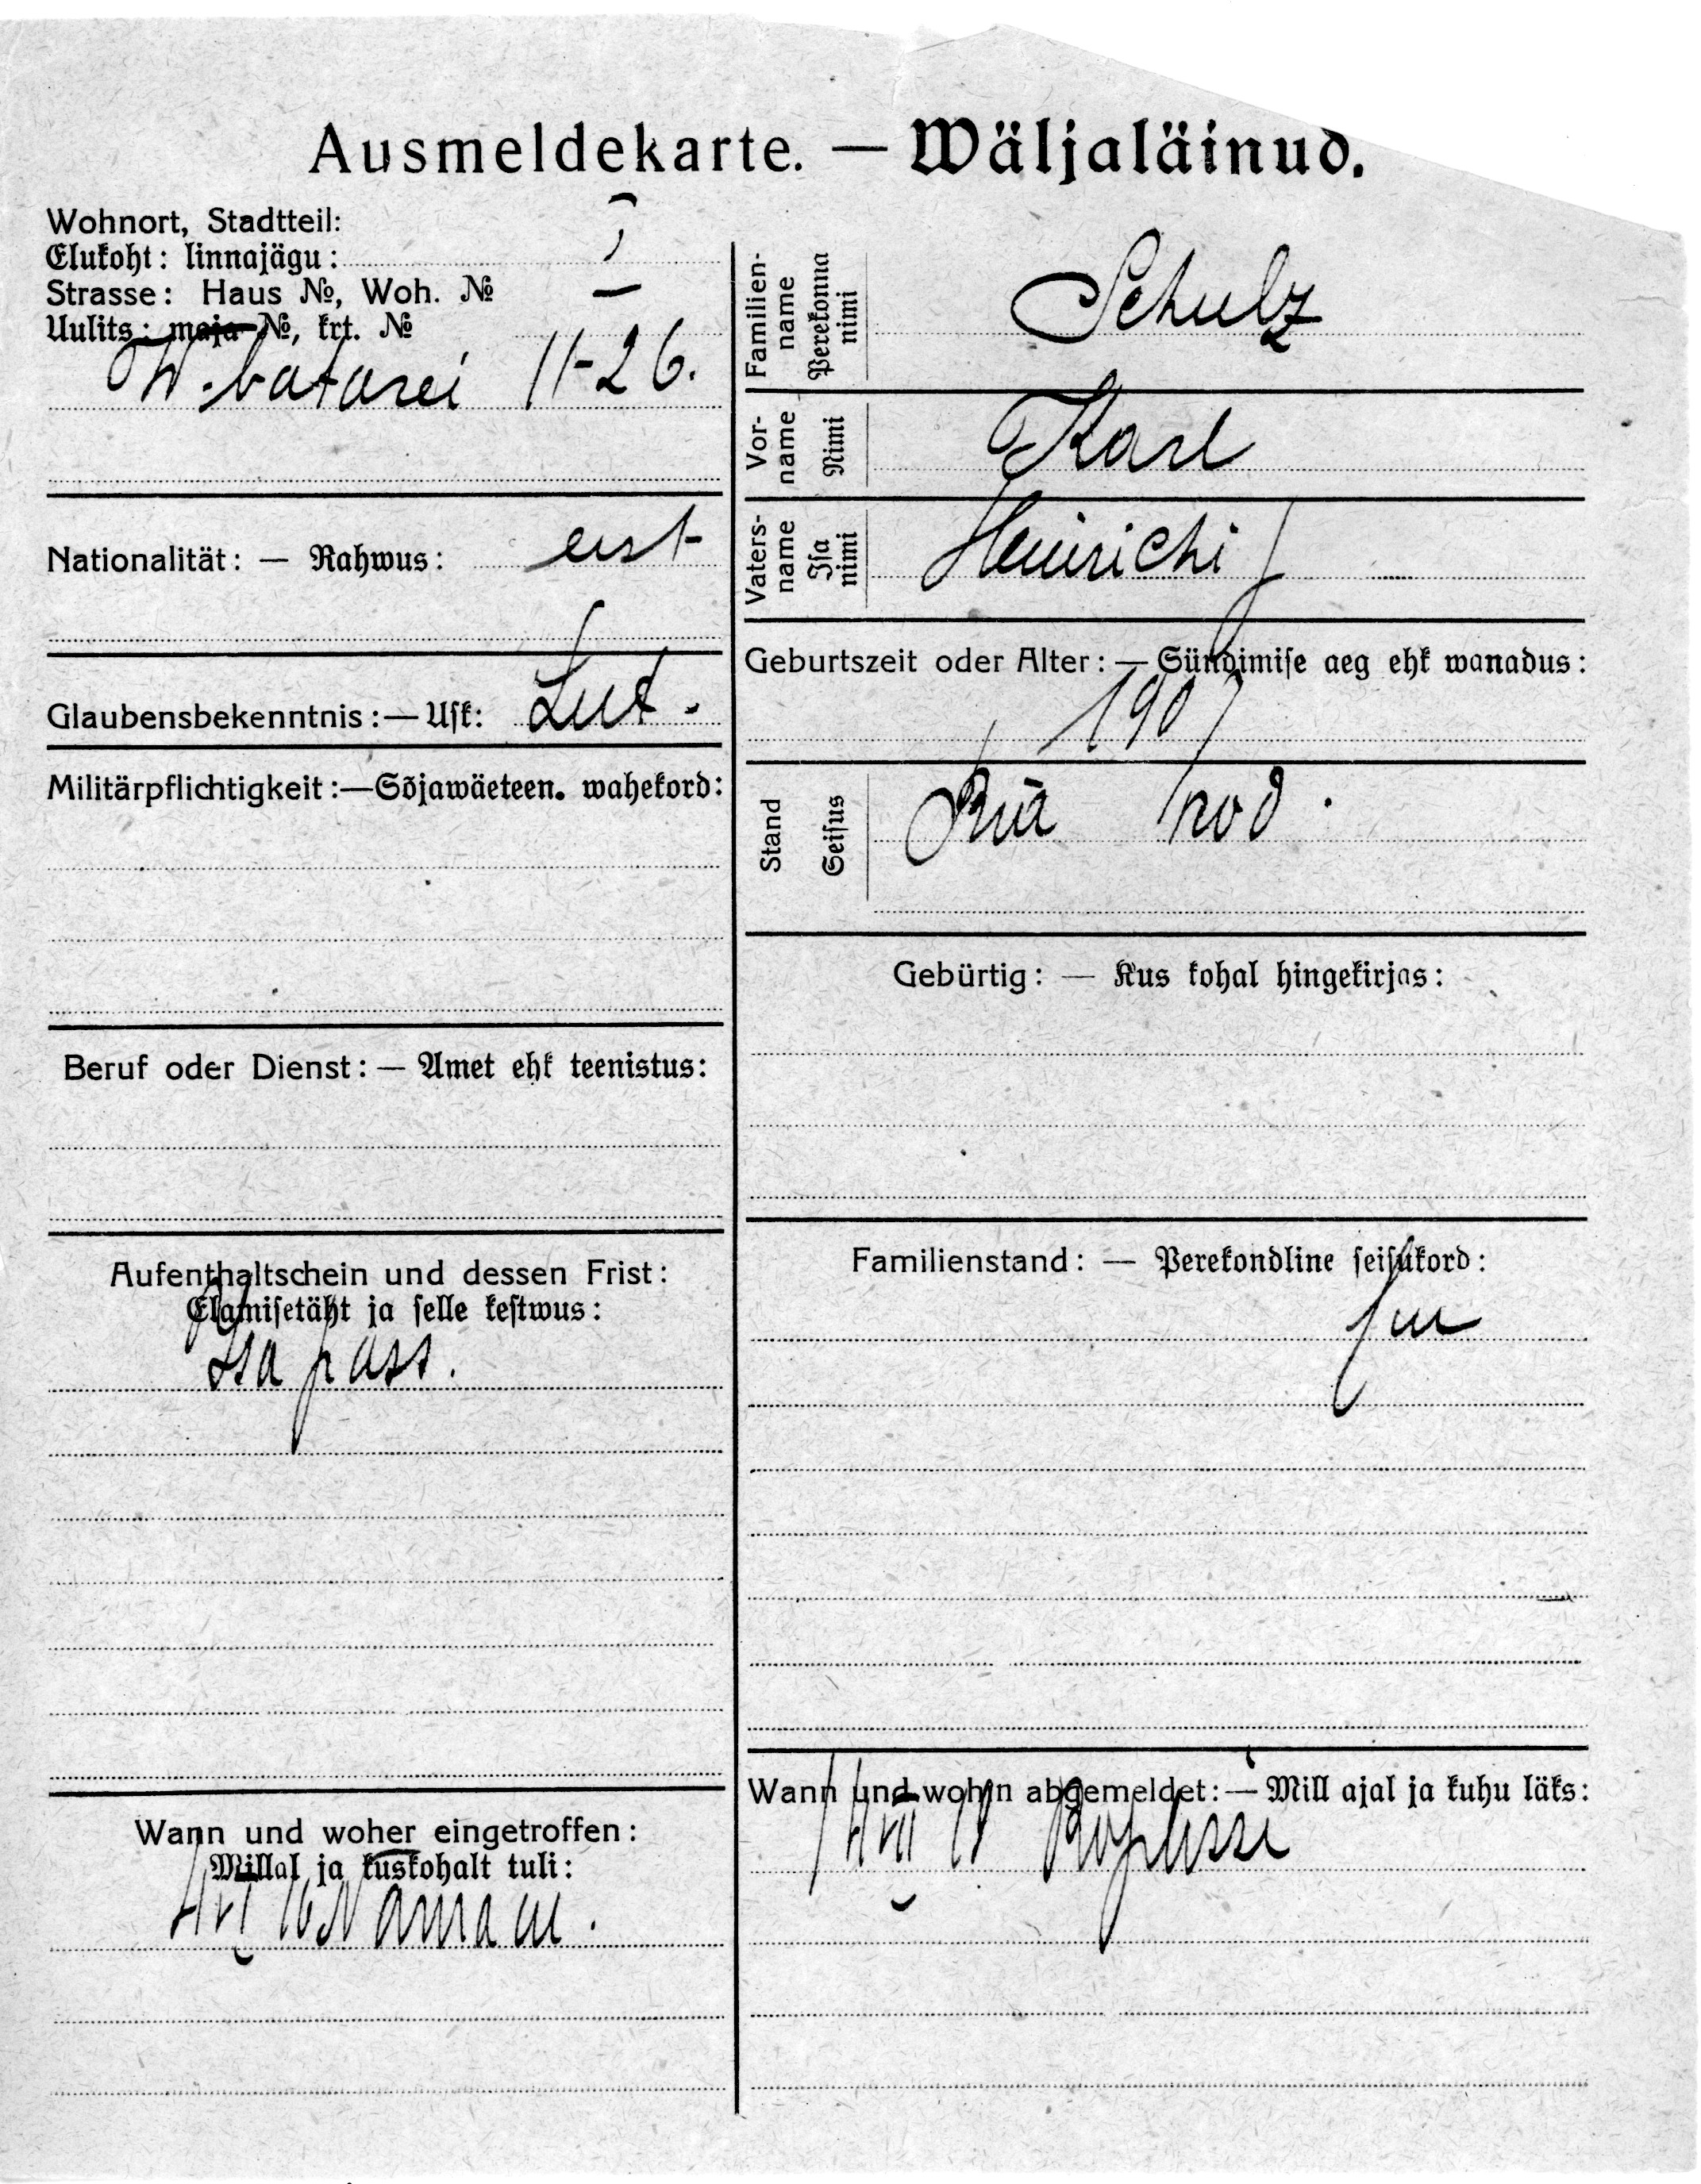 Ausmeldekarte. — Wäljaläinud.
Wohnort, Stadtteil:
Elukoht: linnajägu: I
Strasse: Haus №, Woh. №
Uulits: maja №, krt. №
W. batarei 11-26.
Nationalität: — Rahwus: eest
Glaubensbekenntnis: — Usk: Lut.
Militärpflichtigkeit: — Sõjawäeteen. wahekord:
Beruf oder Dienst: — Amet ehk teenistus:
Aufenthaltschein und dessen Frist:
Elamisetäht ja selle kestwus:
Isa pass.
Wann und woher eingetroffen:
Millal ja kuskohalt tuli:
Familien-name Perekonna nimi Schulz
Vor-name Nimi Karl
Vaters-name Isa nimi Heinrichi
Geburtszeit oder Alter: — Sündimise aeg ehk wanadus:
1907
Stand Seisus
Gebürtig: — Kus kohal hingekirjas:
Familienstand: — Perekondline seisukord:
Wann und wohin abgemeldet: — Mill ajal ja kuhu läks: